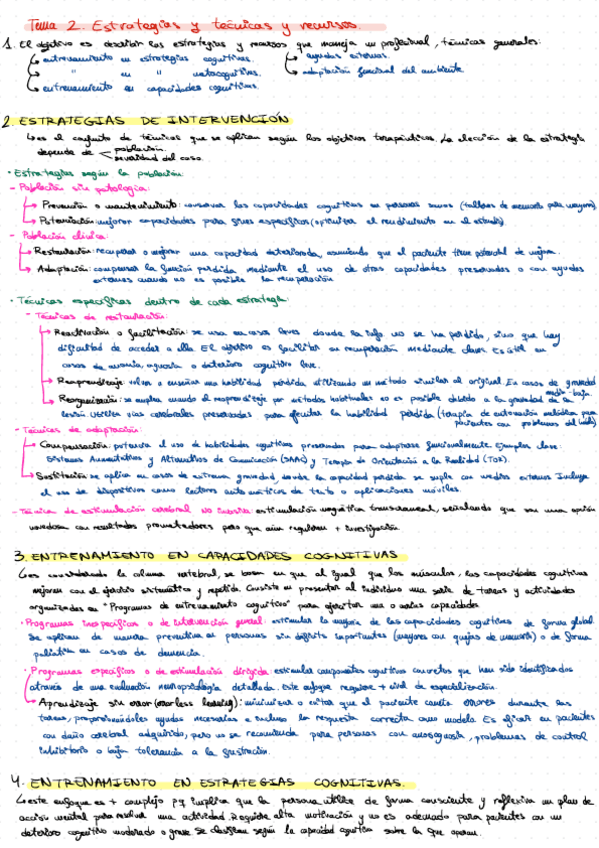 Tema 2. Estrategias y técnicas y recursos.
1. El objetivo es describir las estrategias y recursos que maneja un profesional, técnicas generales:
entrenamiento en estrategias cognitivas. ayudas externas.
" en " metacognitivas. adaptación funcional del ambiente.
entrenamiento en capacidades cognitivas.
2. ESTRATEGIAS DE INTERVENCIÓN
es el conjunto de técnicas que se aplican según los objetivos terapéuticos. La elección de la estrategia
depende de población.
severidad del caso.
· Estrategias según la población:
- Población sin patología:
Prevención o mantenimiento: conservar las capacidades cognitivas en personas sanas (talleres de memoria para mayores)
Potenciación: mejorar capacidades para fines específicos (optimizar el rendimiento en el estudio)
- Población clínica:
Restauración: recuperar o mejorar una capacidad deteriorada, asumiendo que el paciente tiene potencial de mejora.
Adaptación: compensar la función perdida mediante el uso de otras capacidades preservadas o con ayudas
externas cuando no es posible la recuperación
· Técnicas específicas dentro de cada estrategia:
- Técnicas de restauración:
Reactivación o facilitación: se usa en casos leves donde la info no se ha perdido, sino que hay
dificultad de acceder a ella. El objetivo es facilitar su recuperación mediante claves. Es útil en
casos de anomia, agnosia o deterioro cognitivo leve.
Reaprendizaje: volver a enseñar una habilidad perdida utilizando un método similar al original. En casos de gravedad
media-baja.
Reorganización: se emplea cuando el reaprendizaje por métodos habituales no es posible debido a la gravedad de la
lesión. Utiliza vías cerebrales preservadas para ejecutar la habilidad perdida (terapia de entonación melódica para
pacientes con problemas del habla)
- Técnicas de adaptación:
Compensación: potencia el uso de habilidades cognitivas preservadas para adaptarse funcionalmente. Ejemplos clave:
Sistemas Aumentativos y Alternativos de Comunicación (SAAC) y Terapia de Orientación a la Realidad (TOR).
Sustitución: se aplica en casos de extrema gravedad, donde la capacidad perdida se suple con medios externos. Incluye
el uso de dispositivos como lectores automáticos de texto o aplicaciones móviles.
- Técnica de estimulación cerebral no invasiva: estimulación magnética transcraneal, señalando que son una opción
novedosa con resultados prometedores pero que aún requieren + investigación.
3. ENTRENAMIENTO EN CAPACIDADES COGNITIVAS
es considerado la columna vertebral, se basan en que al igual que los músculos, las capacidades cognitivas
mejoran con el ejercicio sistemático y repetido. Consiste en presentar al individuo una serie de tareas y actividades
organizadas en "Programas de entrenamiento cognitivo" para ejercitar una o varias capacidades
· Programas inespecíficos o de intervención general: estimular la mayoría de las capacidades cognitivas de forma global.
Se aplican de manera preventiva en personas sin déficits importantes (mayores con quejas de memoria) o de forma
paliativa en casos de demencia.
· Programas específicos o de estimulación dirigida: estimulan componentes cognitivos concretos que han sido identificados
através de una evaluación neuropsicología detallada. Este enfoque requiere + nivel de especialización.
Aprendizaje sin error (errorless learning): minimizar o evitar que el paciente cometa errores durante las
tareas, proporcionándoles ayudas necesarias e incluso la respuesta correcta como modelo. Es eficaz en pacientes
con daño cerebral adquirido, pero no se recomienda para personas con anosognosia, problemas de control
inhibitorio o baja tolerancia a la frustración.
4. ENTRENAMIENTO EN ESTRATEGIAS COGNITIVAS.
este enfoque es + complejo pq implica que la persona utilice de forma consciente y reflexiva un plan de
acción mental para resolver una actividad. Requiere alta motivación y no es adecuado para pacientes con un
deterioro cognitivo moderado o grave. Se clasifican según la capacidad cognitiva sobre la que operan.